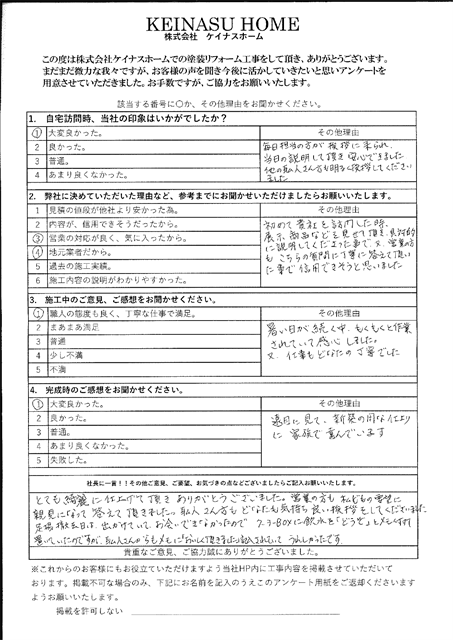 KEINASU HOME
株式会社 ケイナスホーム
この度は株式会社ケイナスホームでの塗装リフォーム工事をして頂き、ありがとうございます。
まだまだ微力な我々ですが、お客様の声を聞き今後に活かしていきたいと思いアンケートを
用意させていただきました。お手数ですが、ご協力をお願いいたします。
該当する番号に○か、その他理由をお聞かせください。
1. 自宅訪問時、当社の印象はいかがでしたか？
1 大変良かった。
その他理由
2 良かった。
3 普通。
4 あまり良くなかった。
毎日担当の方が挨拶に来られ、
当日の説明して頂き安心できました
他の職人さん方も明るく挨拶してください
ました
2. 弊社に決めていただいた理由など、参考までにお聞かせいただけましたらお願いいたします。
1 見積の値段が他社より安かった為。
その他理由
2 内容が、信用できそうだったから。
3 営業の対応が良く、気に入ったから。
4 地元業者だから。
5 過去の施工実績。
6 施工内容の説明がわかりやすかった。
初めて貴社を訪問した時、
展示商品などを見せて頂き、具体的
に説明してくださった事で、又、営業の方
もこちらの質問に丁寧に答えて頂い
た事で信用できそうと思いました
3. 施工中のご意見、ご感想をお聞かせください。
1 職人の態度も良く、丁寧な仕事で満足。
その他理由
2 まあまあ満足
3 普通
4 少し不満
5 不満
暑い日が続く中、もくもくと作業
されていて感心しました。
又、仕事もどなたも丁寧でした
4. 完成時のご感想をお聞かせください。
1 大変良かった。
その他理由
2 良かった。
3 普通。
4 あまり良くなかった。
5 失敗した。
遠目に見て、新築の用な仕上り
に家族で喜んでいます
社長に一言！！その他ご意見、ご要望、お気づきの点などございましたらご記入お願いします。
とても綺麗に仕上げて頂きありがとうございました。営業の方も私どもの要望に
親身になって答えて頂きました。職人さん方もどなたも気持ち良い挨拶をしてくださいました
足場撤去日は、出かけていて、お会いできなかったので クーラーBOXに飲水を「どうぞ」とメモを付け
置いていたのですが、職人さんからもメモに
うれしかったです
貴重なご意見、ご協力誠にありがとうございました。
※これからのお客様にもお役立ていただけますよう当社HP内に工事内容を掲載させていただいて
おります。掲載不可な場合のみ、下記にお名前を記入のうえこのアンケート用紙をご返却くださいます
ようお願いします。
掲載を許可しない